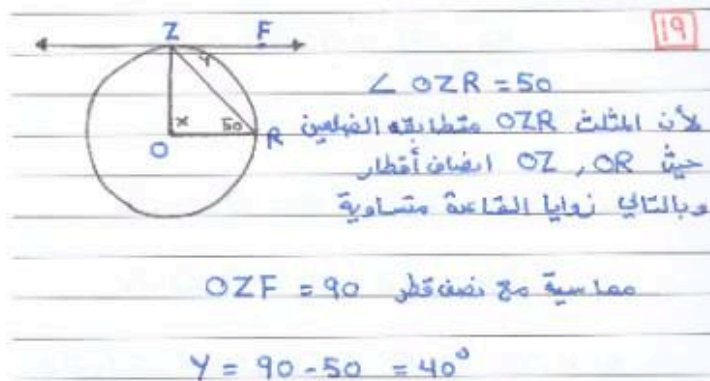 19
Z F
y
∠ OZR = 50
x 50
O R
لأن المثلث OZR متطابقه الضلعين
حيث OZ , OR انصاف أقطار
وبالتالي زوايا القاعدة متساوية
OZF = 90 مماسية مع نصف قطر
Y = 90 - 50 = 40°